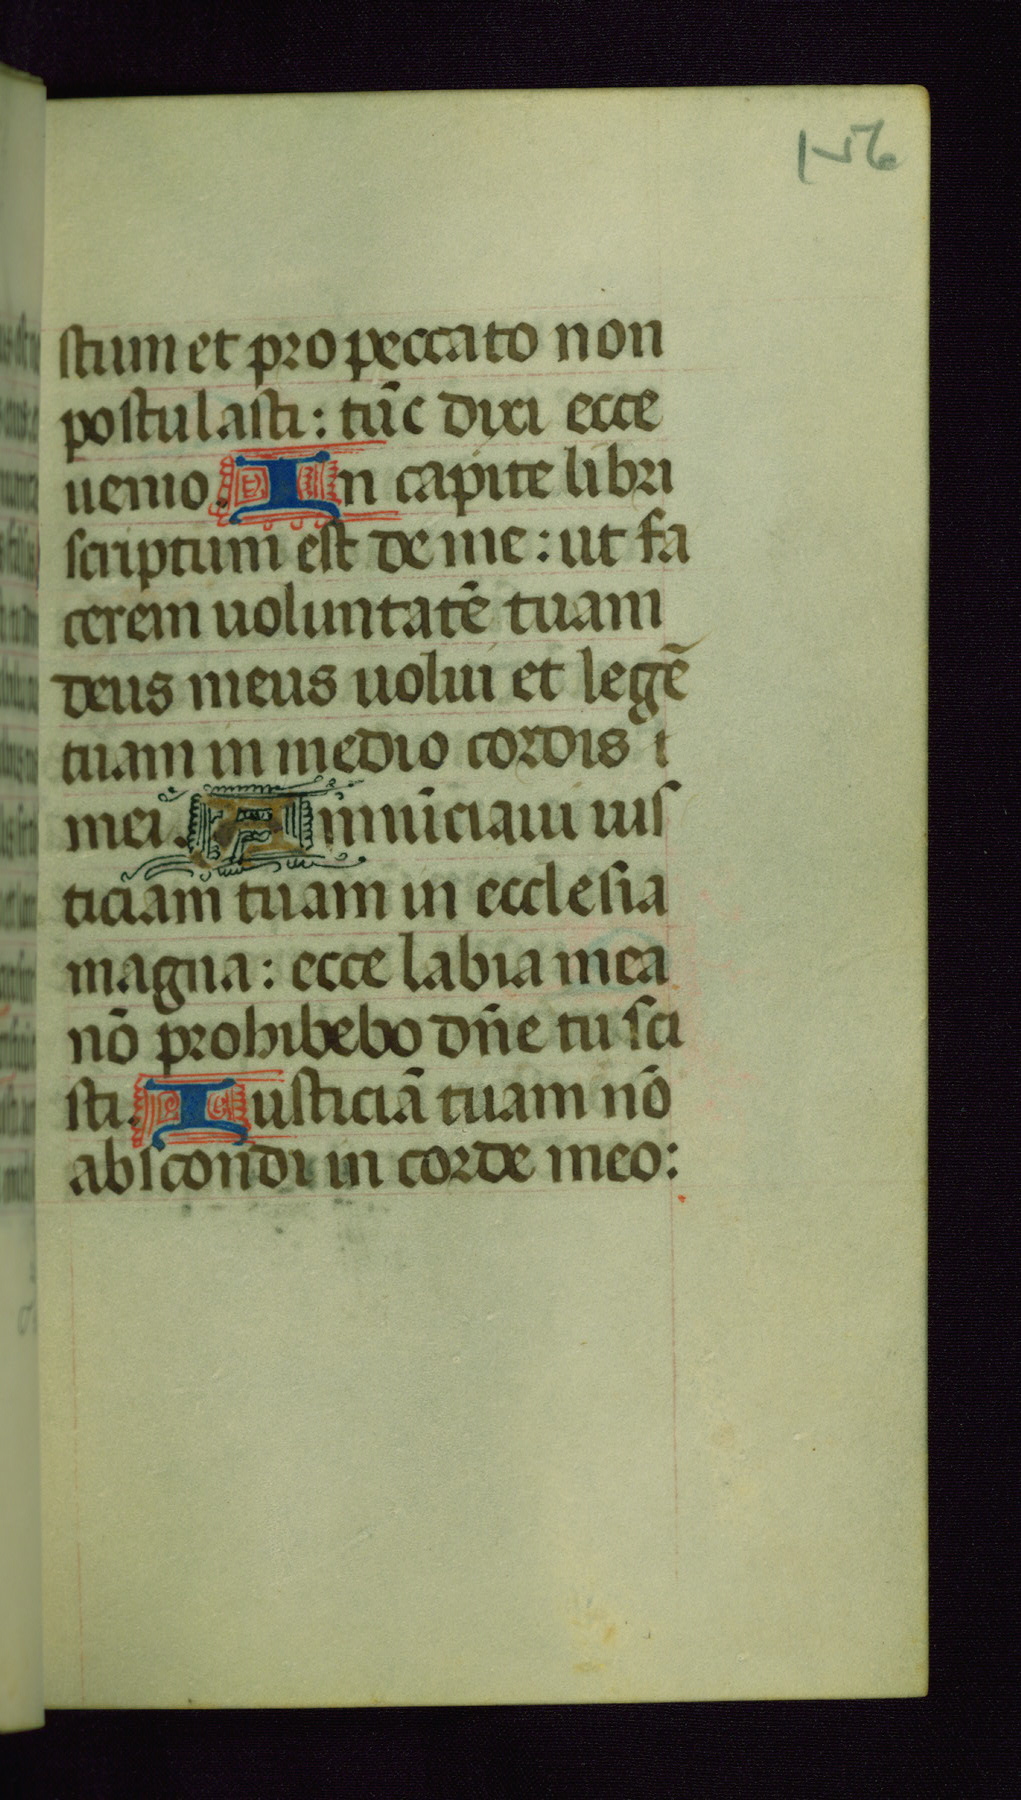 156
stium et pro peccato non
postulasti: tūc dixi ecce
uenio. In capite libri
scriptum est de me: ut fa
cerem uoluntatē tuam
deus meus uolui et legē
tuam in medio cordis i
mei. Annūciaui ius
ticiam tuam in ecclesia
magna: ecce labia mea
nō prohibebo dn̄e tu sci
sti. Iusticiā tuam nō
abscondi in corde meo: